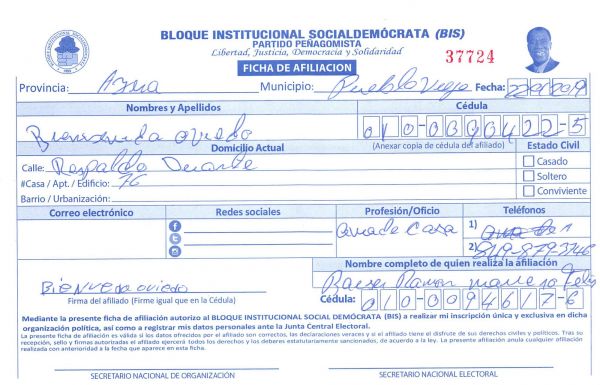 BLOQUE INSTITUCIONAL SOCIALDEMÓCRATA (BIS)
PARTIDO PEÑAGOMISTA
Libertad, Justicia, Democracia y Solidaridad
37724
FICHA DE AFILIACION
Provincia: Azua Municipio: Pueblo Viejo Fecha:
Nombres y Apellidos Cédula
Bienvenida oviedo 010-0300422-5
Domicilio Actual (Anexar copia de cédula del afiliado) Estado Civil
Calle: Respaldo Duarte Casado
#Casa / Apt. / Edificio: 76 Soltero
Barrio / Urbanización: Conviviente
Correo electrónico Redes sociales Profesión/Oficio Teléfonos
Ama de Casa 1)
2) 819-879-3746
Nombre completo de quien realiza la afiliación
Bienven oviedo Ramon
Firma del afiliado (Firme igual que en la Cédula) Cédula: 010-0094617-6
Mediante la presente ficha de afiliación autorizo al BLOQUE INSTITUCIONAL SOCIAL DEMÓCRATA (BIS) a realizar mi inscripción única y exclusiva en dicha
organización política, así como a registrar mis datos personales ante la Junta Central Electoral.
La presente ficha de afiliación es válida si los datos ofrecidos por el afiliado son correctos, las declaraciones veraces y si el afiliado tiene el disfrute de sus derechos civiles y políticos. Tras su
recepción, sello y firmas autorizadas el afiliado ejercerá todos los derechos y los deberes estatutariamente sancionados, de acuerdo a la ley. La presente afiliación anula cualquier afiliación
realizada con anterioridad a la fecha que aparece en esta ficha.
SECRETARIO NACIONAL DE ORGANIZACIÓN SECRETARIO NACIONAL ELECTORAL